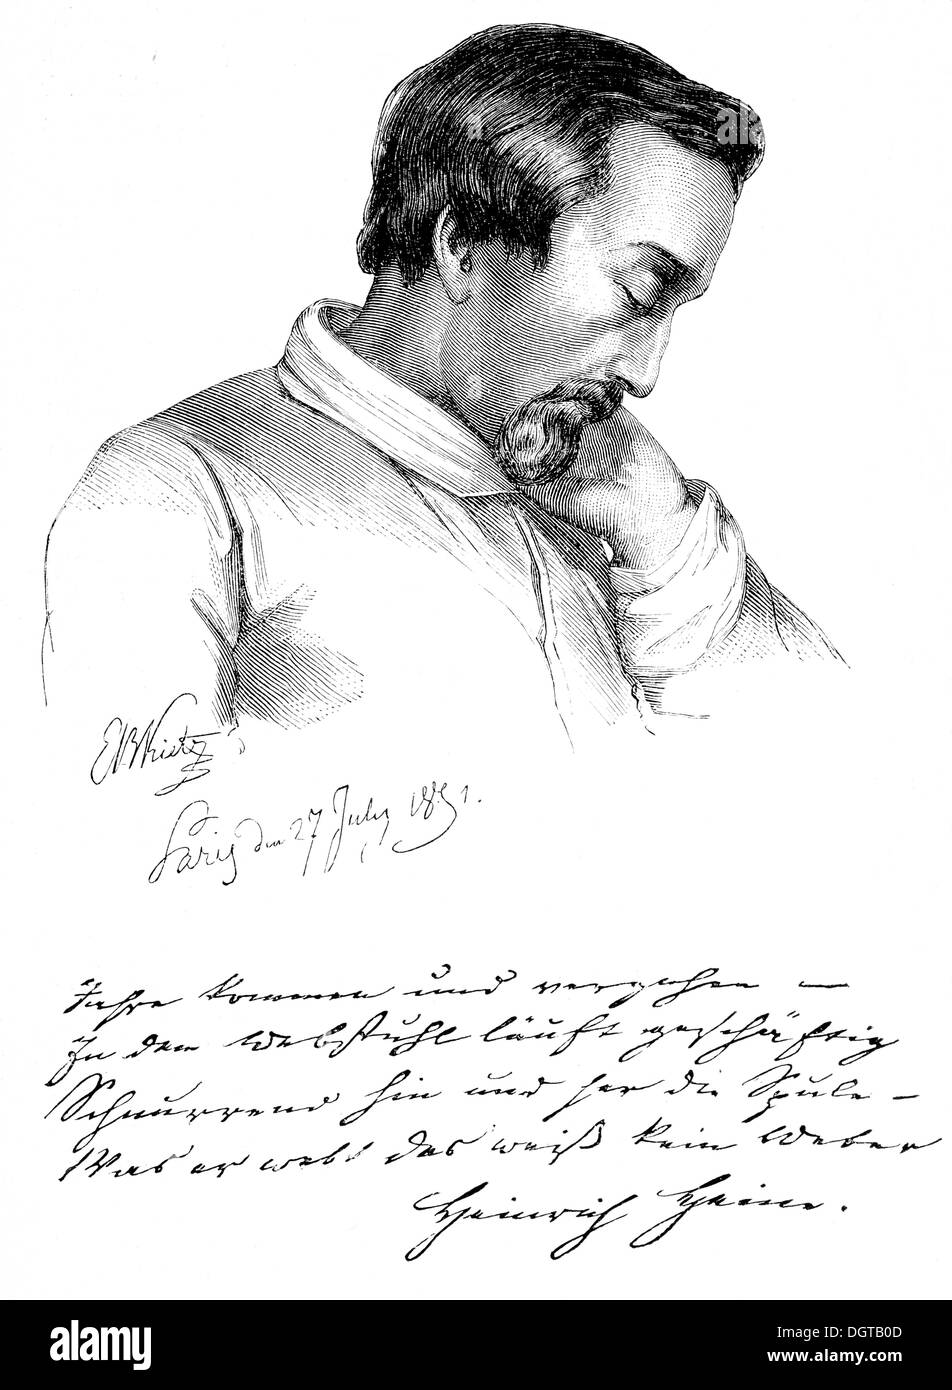 E B Kietz
Paris den 27 July 1851.
Jahre kommen und vergehen –
In dem Webstuhl läuft geschäftig
Schnurrend hin und her die Spule –
Was er webt das weiß kein Weber
Heinrich Heine.
alamy
a
a
a
alamy
Image ID: DGTB0D
www.alamy.com